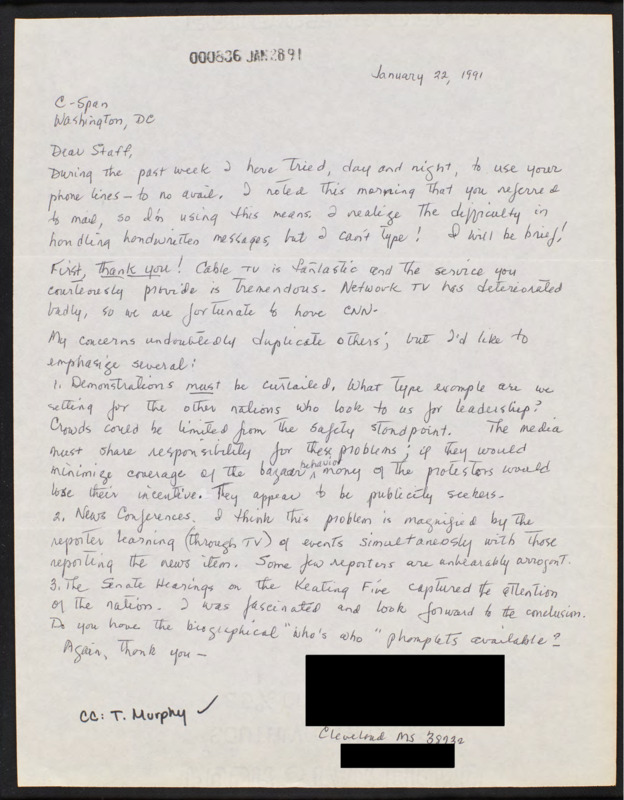 000836 JAN 28 91
January 22, 1991
C-Span
Washington, DC
Dear Staff,
During the past week I have tried, day and night, to use your
phone lines - to no avail. I noted this morning that you referred
to mail, so I'm using this means. I realize the difficulty in
handling handwritten messages, but I can't type! I will be brief!
First, thank you! Cable TV is fantastic and the service you
courteously provide is tremendous. Network TV has deteriorated
badly, so we are fortunate to have CNN.
My concerns undoubtedly duplicate others', but I'd like to
emphasize several:
1. Demonstrations must be curtailed. What type example are we
setting for the other nations who look to us for leadership?
Crowds could be limited from the safety standpoint. The media
must share responsibility for these problems; if they would
minimize coverage of the bazaar behavior many of the protestors would
lose their incentive. They appear to be publicity seekers.
2. News Conferences. I think this problem is magnified by the
reporter learning (through TV) of events simultaneously with those
reporting the news item. Some few reporters are unbearably arrogant.
3. The Senate Hearings on the Keating Five captured the attention
of the nation. I was fascinated and look forward to the conclusion.
Do you have the biographical "Who's who" phamplets available?
Again, thank you -
CC: T. Murphy ✓
Cleveland MS 38732